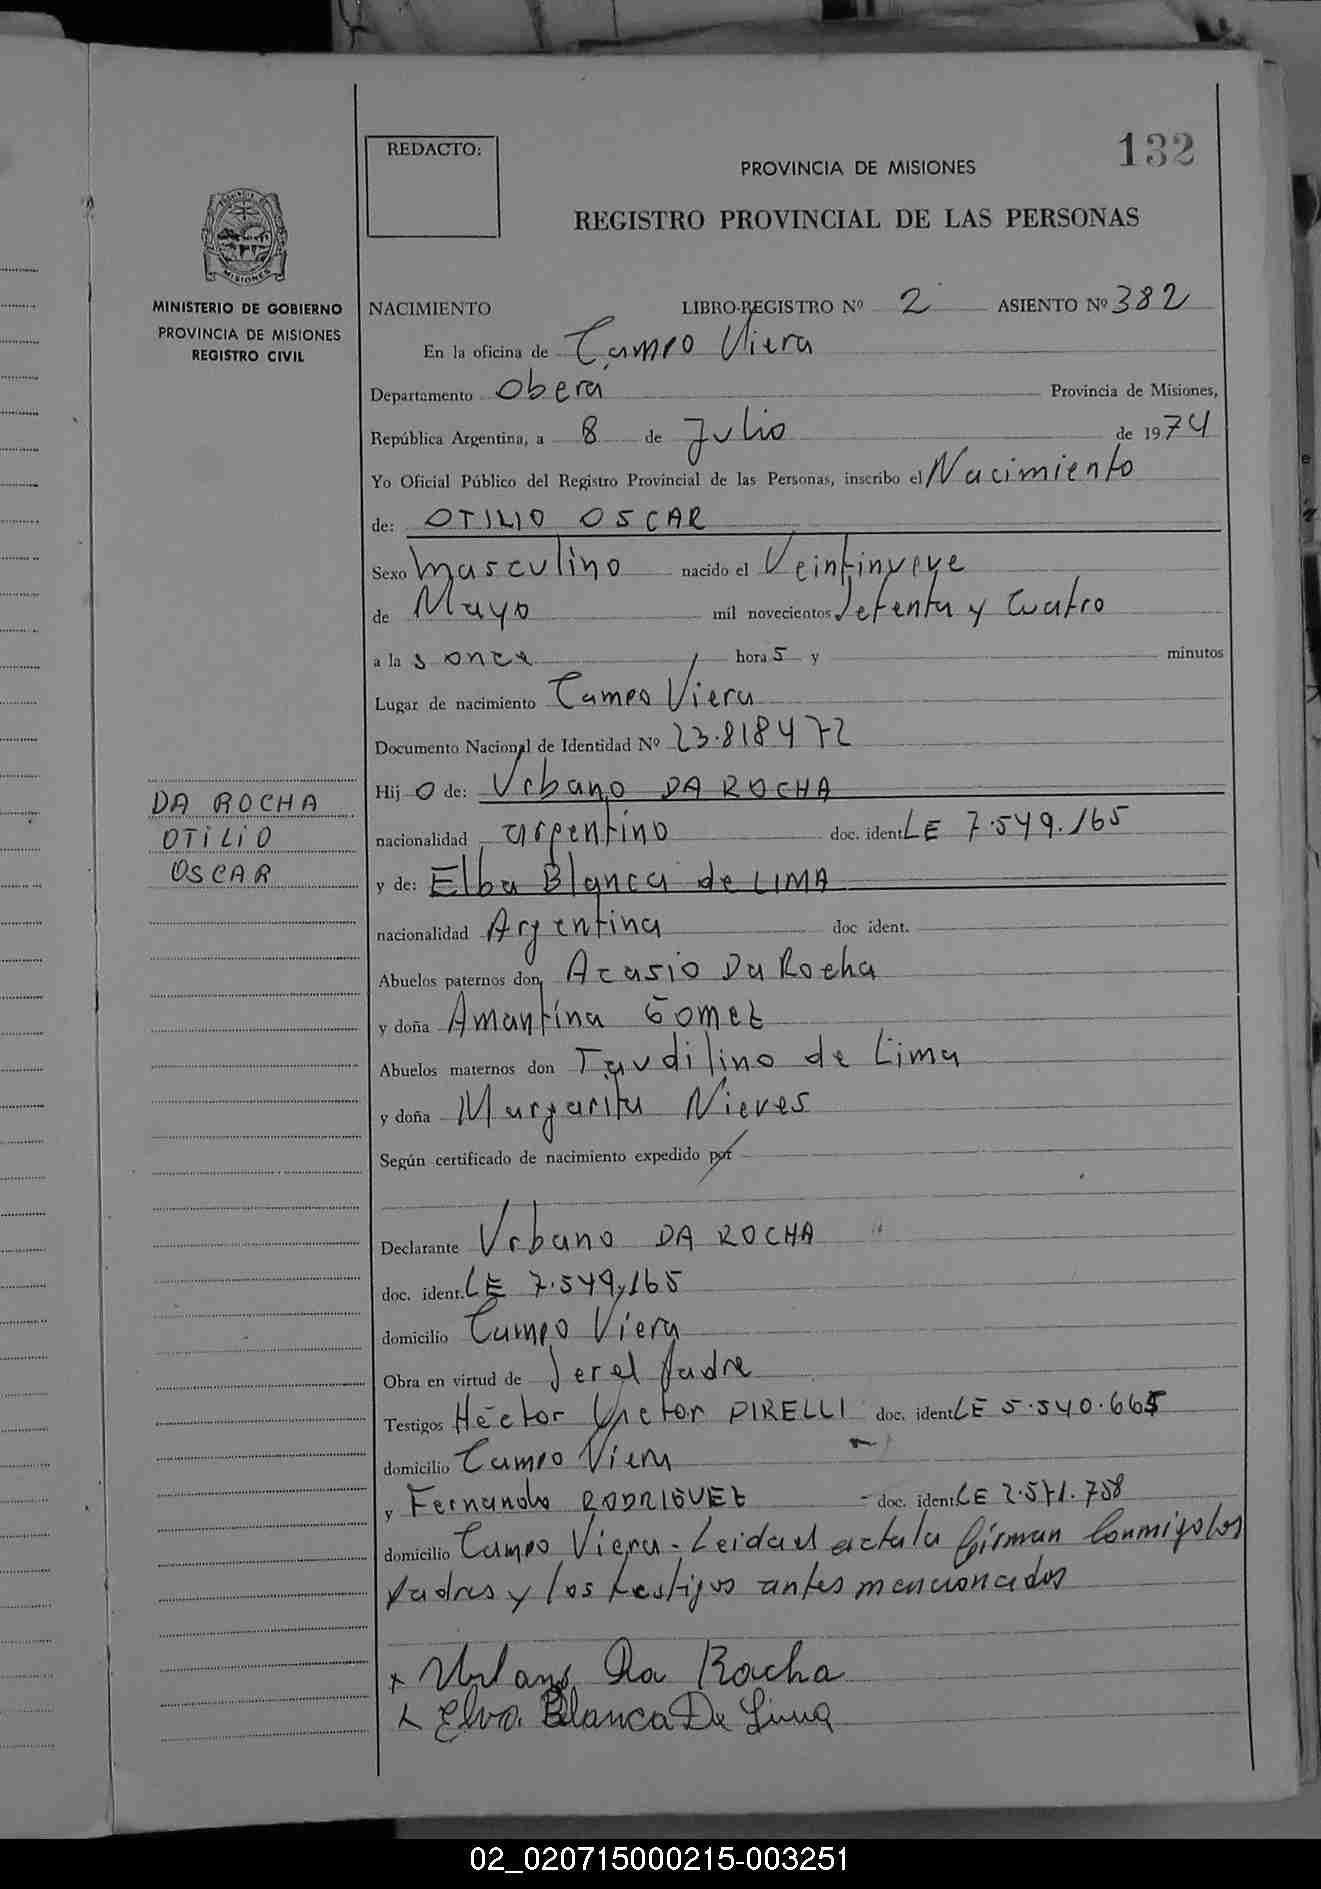 132
REDACTO:
PROVINCIA DE MISIONES
REGISTRO PROVINCIAL DE LAS PERSONAS
MISIONES
MINISTERIO DE GOBIERNO
PROVINCIA DE MISIONES
REGISTRO CIVIL
NACIMIENTO LIBRO-REGISTRO Nº 2 ASIENTO Nº 382
En la oficina de Campo Viera
Departamento Oberá Provincia de Misiones,
República Argentina, a 8 de Julio de 1974
Yo Oficial Público del Registro Provincial de las Personas, inscribo el Nacimiento
de: OTILIO OSCAR
Sexo masculino nacido el Veintinueve
de Mayo mil novecientos Setenta y Cuatro
a la s once hora s y minutos
Lugar de nacimiento Campo Viera
Documento Nacional de Identidad Nº 23.818472
Hij o de: Urbano DA ROCHA
nacionalidad argentino doc. ident. LE 7.549.165
DA ROCHA
OTILIO
OSCAR
y de: Elba Blanca de LIMA
nacionalidad Argentina doc ident.
Abuelos paternos don, Acasio Da Rocha
y doña Amantina Gomez
Abuelos maternos don de Lima
y doña Margarita Nieves
Según certificado de nacimiento expedido por
Declarante Urbano DA ROCHA
doc. ident. LE 7.549,165
domicilio Campo Viera
Obra en virtud de Ser el Padre
Testigos Héctor Victor PIRELLI doc. ident. LE 5.540.665
domicilio Campo Viera
y Fernando RODRIGUEZ doc. ident. LE 2.571.758
domicilio Campo Viera. Leida el acta la firman Conmigo los
Padres y los testigos antes mencionados
x Urbano Da Rocha
x Elva. Blanca De Lima
02_020715000215-003251